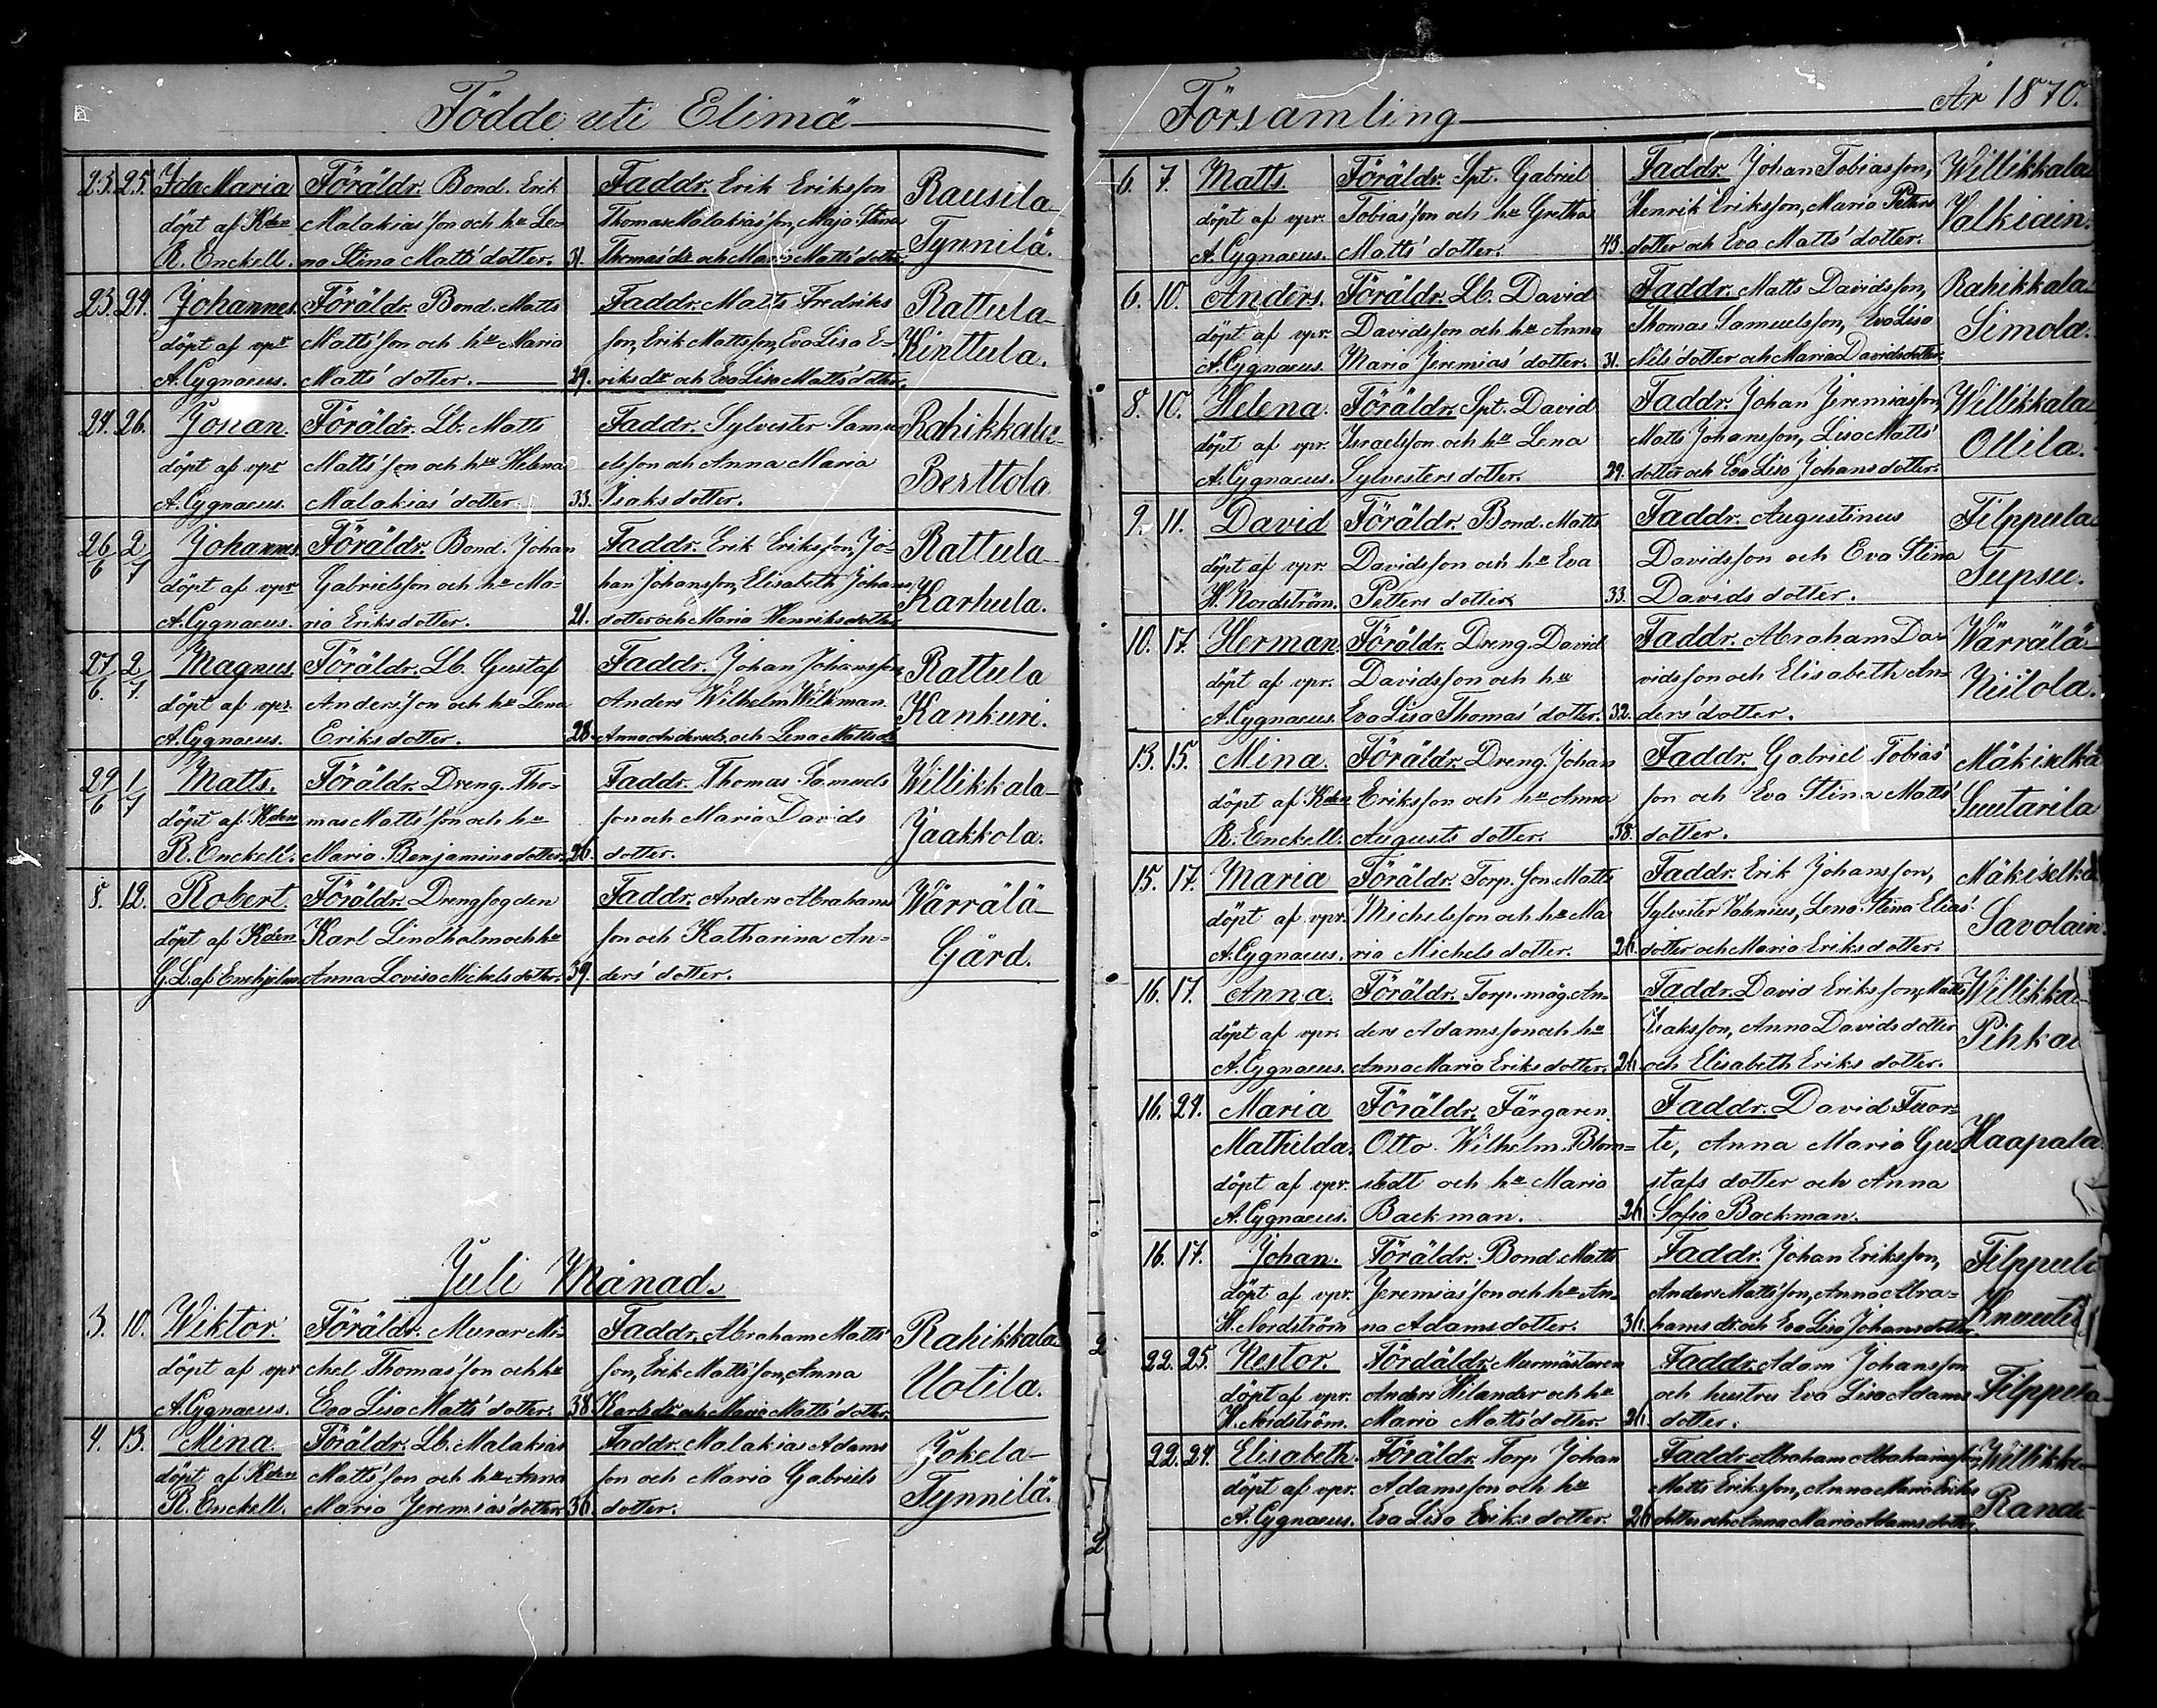 Födde uti Elimä
23. 25. Ida Maria Föräldr. Bond. Erik Faddr. Erik Eriksson Rausila
döpt af Kden Malakias'son och hu Le- Thomas Malakias'son, Maja Stina Tynnilä.
R. Enckell. na Stina Matts'dotter. 31. Thomas'dr och Maria Matts'dotter
23. 24. Johannes. Föräldr. Bond. Matts Faddr. Matts Fredriks Rattula-
döpt af vpr Matts'son och hu Maria son, Erik Mattsson, Eva Lisa E- Kinttula.
A. Cygnaeus. Matts'dotter. 29. riksdr och Eva Lisa Matts'dotter.
24. 26. Johan. Föräldr. Lb. Matts Faddr. Sylvester Samu Rahikkala-
döpt af vpr Matts'son och hu Helena elsson och Anna Maria Berttola
A. Cygnaeus. Malakias'dotter. 33. Isaksdotter.
26/6 2/7 Johannes. Föräldr. Bond. Johan Faddr. Erik Eriksson, Jo- Rattula-
döpt af vpr Gabrielsson och hu Ma- han Johansson, Elisabeth Johans Karhula.
A. Cygnaeus. ria Eriksdotter. 21. dotter och Maria Henriksdotter
27/6 2/7 Magnus. Föräldr. Lb. Gustaf Faddr. Johan Johansson Rattula
döpt af vpr. Anders'son och hu Lena Anders Wilhelm Wilkman. Kankuri.
A. Cygnaeus. Eriksdotter. 28. Anna Andersdr. och Lena Mattsdr
29/6 1/7 Matts. Föräldr. Dreng. Tho- Faddr. Thomas Samuels Willikkala-
döpt af Kden mas Matts'son och hu son och Maria Davids Jaakkola.
R. Enckell. Maria Benjaminsdotter. 26. dotter.
8. 12. Robert. Föräldr. Drengfogden Faddr. Anders Abrahams Wärrälä-
döpt af Kden Karl Lindholm och hu son och Katharina An- Gård.
G. L. af Enehjelm Anna Lovisa Michelsdotter. 39. ders'dotter.
Juli Månad.
3. 10. Wiktor. Föräldr. Murar Mi- Faddr. Abraham Matts' Rahikkala
döpt af vpr chel Thomas'son och hu son, Erik Matts'son, Anna Uotila.
A. Cygnaeus. Eva Lisa Matts'dotter. 38. Karlsdr och Maria Matts'dotter.
4. 13. Mina. Föräldr. Lb. Malakias Faddr. Malakias Adams Jokela-
döpt af Kden Matts'son och hu Anna son och Maria Gabriels Tynnilä.
R. Enckell. Maria Jeremias'dotter 36. dotter.
Församling År 1870.
6. 7. Matts. Föräldr. Spt. Gabriel Faddr. Johan Tobiasson, Willikkala
döpt af vpr. Tobias'son och hu Gretha Henrik Eriksson, Maria Peters Valkiain.
A. Cygnaeus. Matts'dotter. 43. dotter och Eva Matts'dotter.
6. 10. Anders. Föräldr. Lb. David Faddr. Matts Davidsson, Rahikkala
döpt af vpr. Davidsson och hu Anna Thomas Samuelsson, Eva Lisa Simola.
A. Cygnaeus. Maria Jeremias'dotter. 31. Nils'dotter och Maria Davidsdotter.
8. 10. Helena. Föräldr. Spt. David Faddr. Johan Jeremiasson, Willikkala
döpt af vpr. Israelsson och hu Lena Matts Johansson, Lisa Matts' Ollila.
A. Cygnaeus. Sylvestersdotter. 29. dotter och Eva Lisa Johansdotter.
9. 11. David Föräldr. Bond. Matts Faddr. Augustinus Filppula
döpt af vpr. Davidsson och hu Eva Davidsson och Eva Stina Tupsu.
H. Nordström. Petters dotter. 33. Davids dotter.
10. 17. Herman. Föräldr. Dreng David Faddr. Abraham Da- Wärrälä-
döpt af vpr. Davidsson och hu vidsson och Elisabeth An- Niilola.
A. Cygnaeus. Eva Lisa Thomas'dotter. 32. ders'dotter.
13. 15. Mina. Föräldr. Dreng. Johan Faddr. Gabriel Tobias' Mäkiselkä
döpt af Kden Eriksson och hu Anna son och Eva Stina Matts' Suutarila
R. Enckell. Augusts dotter. 38. dotter.
15. 17. Maria Föräldr. Torp. son Matts Faddr. Erik Johansson, Mäkiselkä
döpt af vpr. Michelsson och hu Ma Sylvester Valenius, Lena Stina Elias' Savolain.
A. Cygnaeus. ria Michels dotter. 26. dotter och Maria Eriksdotter.
16. 17. Anna. Föräldr. Torp. måg An- Faddr. David Eriksson, Matts Willikka
döpt af vpr. ders Adamsson och hu Isaksson, Anna Davidsdotter Pihka
A. Cygnaeus. Anna Maria Eriksdotter. 26. och Elisabeth Eriks dotter.
16. 24. Maria Föräldr. Färgaren Faddr. David Fuor- Haapala.
Mathilda. Otto Wilhelm Blom- te, Anna Maria Gu-
döpt af vpr. stedt och hu Maria stafs dotter och Anna
A. Cygnaeus. Backman. 26. Sofia Backman.
16. 17. Johan. Föräldr. Bond. Matts Faddr. Johan Eriksson, Filppul
döpt af vpr. Jeremias'son och hu An- Anders Matts'son, Anna Abra- Knuuti
H. Nordström na Adamsdotter. 36. hamsdr. och Eva Lisa Johansdotter.
22. 25. Nestor. Fördäldr. Murmästaren Faddr. Adam Johansson Filppula
döpt af vpr. Anders Hilander och hu och hustru Eva Lisa Adams
H. Nordström. Maria Matts'dotter. 26. dotter.
22. 24. Elisabeth. Föräldr. Torp Johan Faddr. Abraham Abrahamsson, Willikka
döpt af vpr. Adamsson och hu Matts Eriksson, Anna Maria Eriks Rand
A. Cygnaeus. Eva Lisa Eriks dotter. 26. dotter och Anna Maria Adamsdotter.